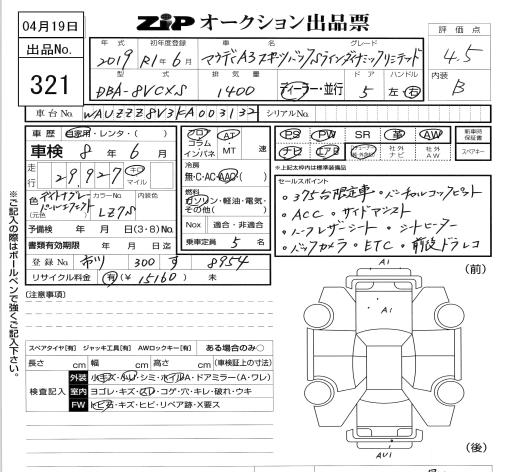 04月19日
出品No.
321
ZIP オークション出品票
評価点
4.5
内装
B
年式 初年度登録 車名 グレード
2019 R1年6月 アウディA3スポーツバックSラインダイナミックリミテッド
型式 排気量 ドア ハンドル
DBA-8VCXS 1400 ディーラー・並行 5 左 右
車台No. WAUZZZ8V3KA003132 シリアルNo.
車歴 自家用・レンタ・( )
車検 8年 6月
走行 29,927 キロ マイル
色 カラーNo. 内装色
(元色) LZ7S
予備検 年 月 日(3・6)No.
書類有効期限 年 月 日迄
登録No. 市川 300 す 8954
リサイクル料金 有(¥ 15160 ) 未
フロア コラム インパネ
AT ・ MT 速
冷房
無・C・AC・AAC( )
燃料
ガソリン・軽油・電気・その他( )
Nox 適合・非適合
乗車定員 5 名
PS PW SR 革 AW
ナビ エアB 社外ナビ 社外AW
新車時保証書
スペアキー
*上記太枠内は標準装備品
セールスポイント
・375台限定車 ・バーチャルコックピット
・ACC ・サイドアシスト
・ハーフレザーシート ・シートヒーター
・バックカメラ ・ETC ・前後ドラレコ
※ご記入の際はボールペンで強くご記入下さい。
[注意事項]
スペアタイヤ[有] ジャッキ工具[有] AWロックキー[有] ある場合のみ○
長さ cm 幅 cm 高さ cm (車検証上の寸法)
検査記入
外装 小キズ・小U・シミ・ホイルA・ドアミラー(A・ワレ)
室内 ヨゴレ・キズ・スレ・コゲ・穴・キレ・破れ・ウキ
FW トビ石・キズ・ヒビ・リペア跡・X要ス
(前)
A1
A1
AU1
(後)